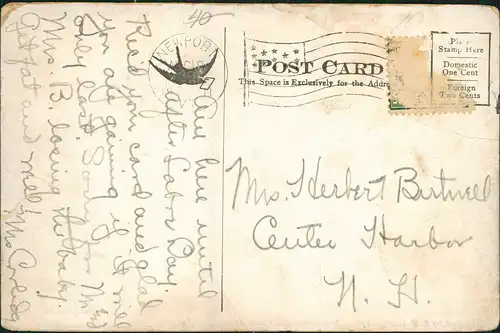 40
NEWPORT
POST CARD
This Space is Exclusively for the Addre
Stamp Here
Domestic
One Cent
Foreign
Two Cents
Am here until
after Labor Day.
Read you card and glad
you are gaining if it is
only east. Sorry for Mr &
Mrs. B. losing the baby.
Get fat and well!
Mrs. Herbert Birtwell
Center Harbor
N. H.